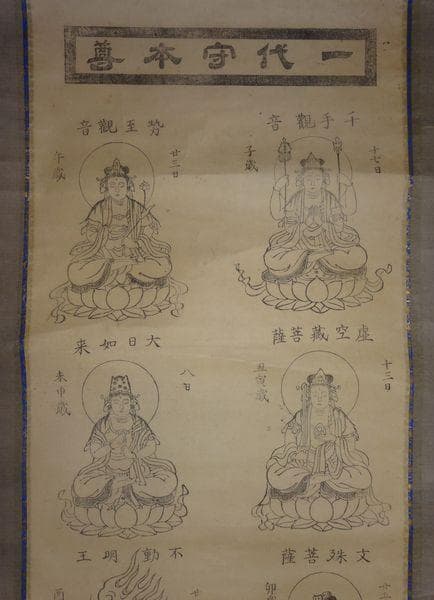 一代守本尊
千手觀音
十七日
子歳
勢至觀音
廿三日
午歳
虚空藏菩薩
十三日
丑寅歳
大日如来
八日
未申歳
文殊菩薩
卯
不動明王
酉